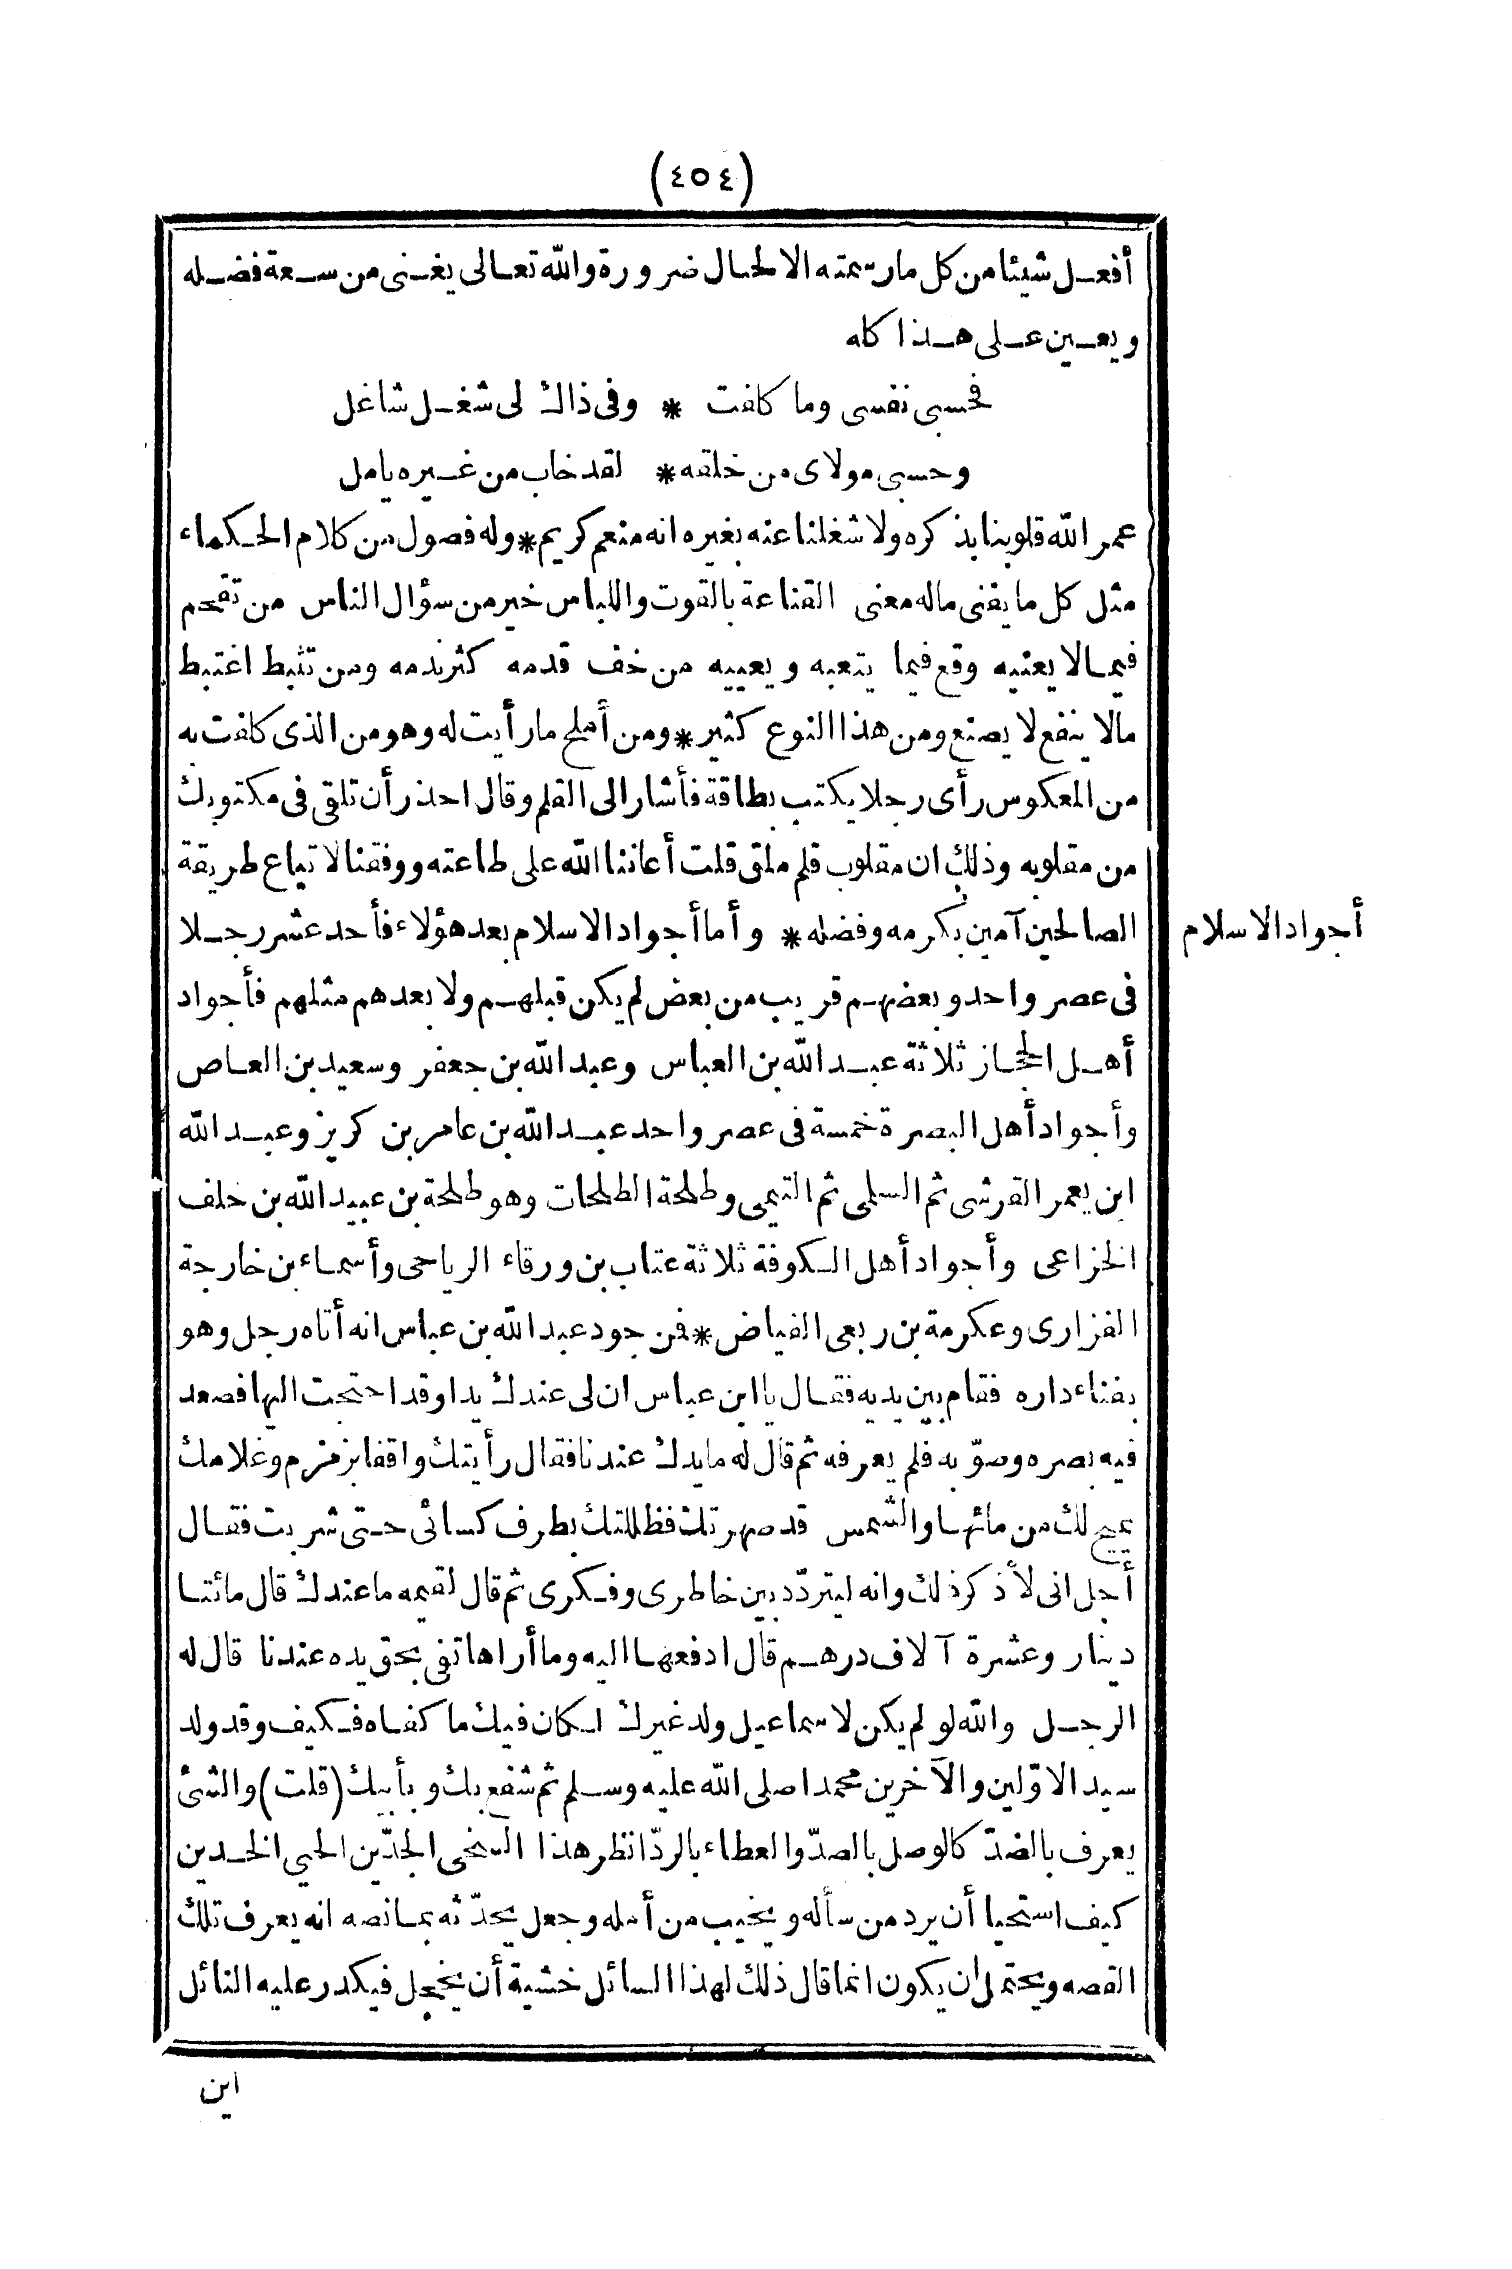 (٤٥٤)
أفعل شيئا من كل مارسمته الا لحال ضرورة والله تعالى يغنى من سعة فضله
ويعين على هذا كله
فحسبى نفسى وما كلفت * وفى ذاك لى شغل شاغل
وحسبى مولاى من خلقه * لقد خاب من غيره يامل
عمر الله قلوبنا بذكره ولا شغلنا عنه بغيره انه منعم كريم * وله فصول من كلام الحكماء
مثل كل ما يفنى ماله معنى القناعة بالقوت واللباس خير من سؤال الناس من تقحم
فيما لا يعنيه وقع فيما يتعبه ويعييه من خف قدمه كثر ندمه ومن تثبط اغتبط
مالا ينفع لا يصنع ومن هذا النوع كثير * ومن أملح ما رأيت له وهو من الذى كلفت به
من المعكوس رأى رجلا يكتب بطاقة فأشار الى القلم وقال احذر أن تلقى فى مكتوبك
من مقلوبه وذلك ان مقلوب قلم ملق قلت أعاننا الله على طاعته ووفقنا لاتباع طريقة
الصالحين آمين بكرمه وفضله * وأما أجواد الاسلام بعد هؤلاء فأحد عشر رجلا
أجواد الاسلام
فى عصر واحد وبعضهم قريب من بعض لم يكن قبلهم ولا بعدهم مثلهم فأجواد
أهل الحجاز ثلاثة عبد الله بن العباس وعبد الله بن جعفر وسعيد بن العاص
وأجواد أهل البصرة خمسة فى عصر واحد عبد الله بن عامر بن كريز وعبيد الله
ابن يعمر القرشى ثم السلمى ثم التيمى وطلحة الطلحات وهو طلحة بن عبيد الله بن خلف
الخزاعى وأجواد أهل الكوفة ثلاثة عتاب بن ورقاء الرياحى وأسماء بن خارجة
الفزارى وعكرمة بن ربعى الفياض * فمن جود عبد الله بن عباس انه أتاه رجل وهو
بفناء داره فقام بين يديه فقال يا ابن عباس ان لى عندك يدا وقد احتجت اليها فصعد
فيه بصره وصوّبه فلم يعرفه ثم قال له ما يدك عندنا فقال رأيتك واقفا بزمزم وغلامك
يميح لك من مائها والشمس قد صهرتك فظللتك بطرف كسائى حتى شربت فقال
أجل انى لأذكر ذلك وانه ليتردّد بين خاطرى وفكرى ثم قال لقيمه ما عندك قال مائتا
دينار وعشرة آلاف درهم قال ادفعها اليه وما أراها تفى بحق يده عندنا قال له
الرجل والله لو لم يكن لاسماعيل ولد غيرك لكان فيك ما كفاه فكيف وقد ولد
سيد الاوّلين والآخرين محمدا صلى الله عليه وسلم ثم شفع بك وبأبيك (قلت) والشئ
يعرف بالضدّ كالوصل بالصدّ والعطاء بالردّ انظر هذا السخى الجدّين الحيي الخدين
كيف استحيا أن يرد من سأله ويخيب من أمله وجعل يحدّثه بما نصه انه يعرف تلك
القصه ويحتمل أن يكون انما قال ذلك لهذا السائل خشية أن يخجل فيكدر عليه النائل
اين